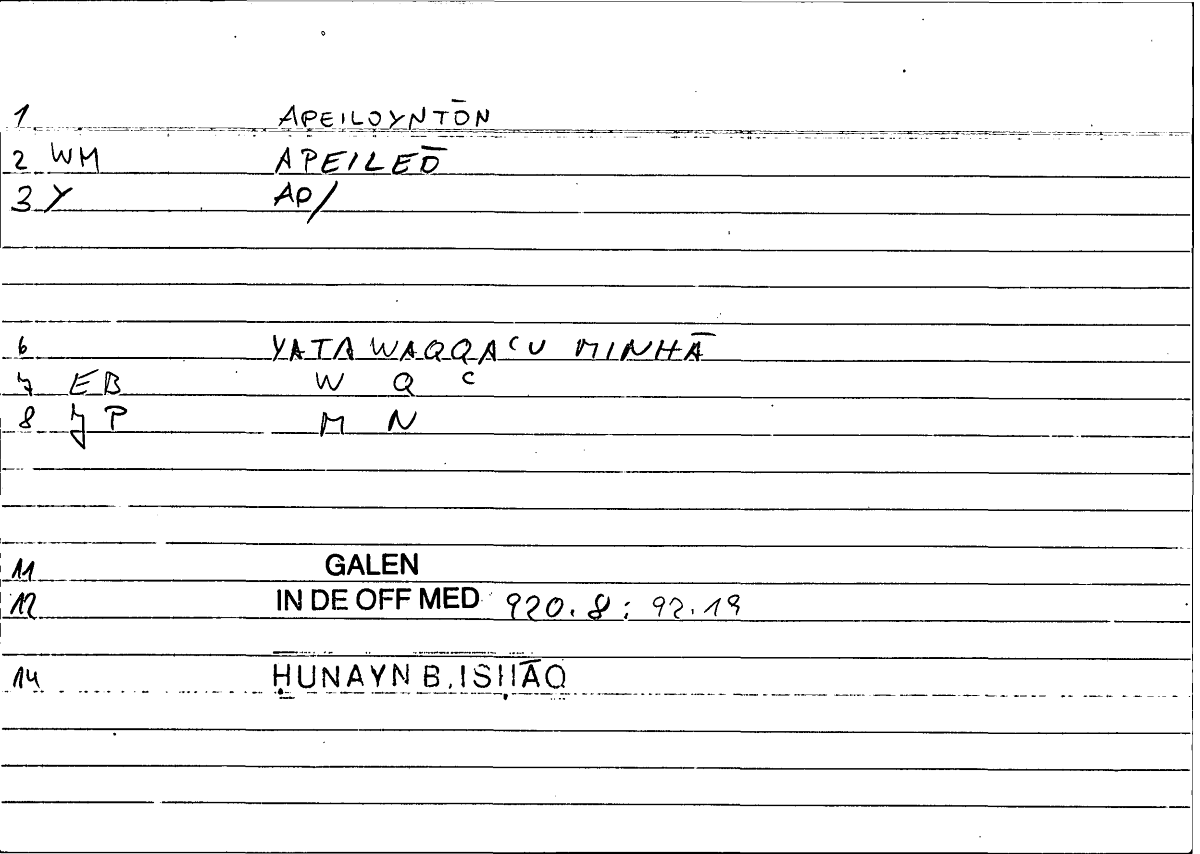 1 APEILOYNTŌN
2 WM APEILEŌ
3 Y AP/
6 YATAWAQQAʿU MINHĀ
7 EB W Q ʿ
8 JP M N
11 GALEN
12 IN DE OFF MED 920.8; 92.19
14 ḤUNAYN B. ISḤĀQ